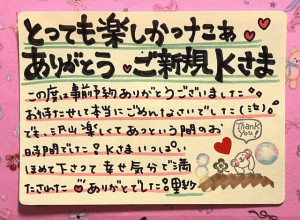 とっても楽しかったぁ
ありがとう♥ご新規Kさま
この度は事前予約ありがとうございました
お待たせして本当にごめんなさいでした(泣)。
でも、沢山楽しくてあっという間のお
時間でした! Kさまいっぱい
ほめて下さって幸せ気分で満
たされた♡ありがとでした!
THANK
YOU!